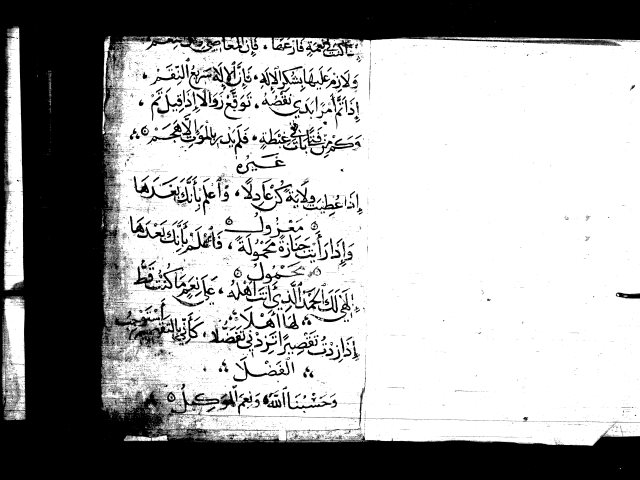 إذا كنت في نعمة فارعها ، فإن المعاصي تزيل النعم
ولازم عليها بشكر الإله ، فإن الإله سريع النقم ،
إذا تم أمر بدى نقصه ، توقع زوالا إذا قيل تم ،
وكم من فتى بات في غبطته ، فلم يدر بالموت إلا هجم
غيره
إذا عطيت ولاية كن عادلا ، واعلم بأنك بعدها
معزول
وإذا رأيت جنازة محمولة ، فاعلم بأنك بعدها
محمول
إلهي لك الحمد الذي أنت أهله ، على نعم ما كنت قط
لها أهلا
إذا زدت تقصيرا تزدني تفضلا ، كأني بالتقصير أستوجب
الفضلا
وحسبنا الله ونعم الوكيل